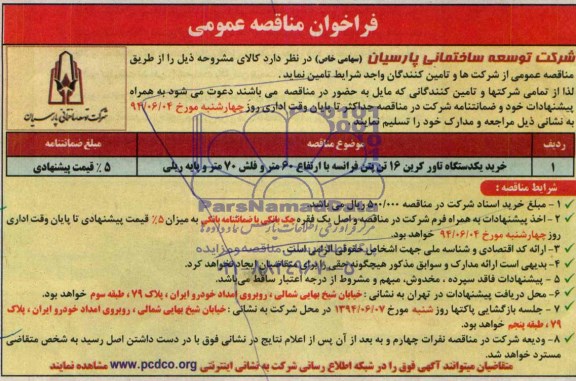 فراخوان مناقصه عمومی
شرکت توسعه ساختمانی پارسیان (سهامی خاص) در نظر دارد کالای مشروحه ذیل را از طریق
مناقصه عمومی از شرکت ها و تامین کنندگان واجد شرایط تامین نماید.
لذا از تمامی شرکتها و تامین کنندگانی که مایل به حضور در مناقصه می باشند دعوت می شود به همراه
پیشنهادات خود و ضمانتنامه شرکت در مناقصه حداکثر تا پایان وقت اداری روز چهارشنبه مورخ ۹۴/۰۶/۰۴
به نشانی ذیل مراجعه و مدارک خود را تسلیم نمایند
شرکت توسعه ساختمانی پارسیان
ردیف موضوع مناقصه مبلغ ضمانتنامه
۱ خرید یکدستگاه تاور کرین ۱۶ تن پتن فرانسه با ارتفاع ۶۰ متر و فلش ۷۰ متر و پایه ریلی ۵ % قیمت پیشنهادی
شرایط مناقصه :
۱- مبلغ خرید اسناد شرکت در مناقصه ۵۰۰/۰۰۰ ریال می باشد.
۲- اخذ پیشنهادات به همراه فرم شرکت در مناقصه و اصل یک فقره چک بانکی یا ضمانتنامه بانکی به میزان ۵% قیمت پیشنهادی تا پایان وقت اداری
روز چهارشنبه مورخ ۹۴/۰۶/۰۴ خواهد بود.
۳- ارائه کد اقتصادی و شناسه ملی جهت اشخاص حقوقی الزامی است
۴- بدیهی است ارائه مدارک و سوابق مذکور هیچگونه حقی را برای متقاضیان ایجاد نخواهد کرد.
۵- پیشنهادات فاقد سپرده ، مخدوش، مبهم و مشروط از درجه اعتبار ساقط می باشد.
۶- محل دریافت پیشنهادات در تهران به نشانی : خیابان شیخ بهایی شمالی ، روبروی امداد خودرو ایران ، پلاک ۷۹ ، طبقه سوم خواهد بود.
۷- جلسه بازگشایی پاکتها روز شنبه مورخ ۱۳۹۴/۰۶/۰۷ در محل شرکت به نشانی : خیابان شیخ بهایی شمالی ، روبروی امداد خودرو ایران ، پلاک
۷۹ ، طبقه پنجم خواهد بود.
۸- ودیعه شرکت در مناقصه نفرات چهارم و به بعد از آن پس از اعلام نتایج در نشانی فوق با در دست داشتن اصل رسید به شخص متقاضی
مسترد خواهد شد.
متقاضیان میتوانند آگهی فوق را در شبکه اطلاع رسانی شرکت به نشانی اینترنتی www.pcdco.org مشاهده نمایند
ParsNamadData